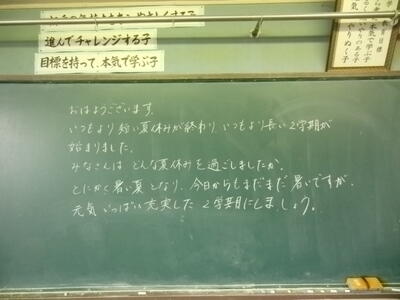 進んでチャレンジする子
目標を持って、本気で学ぶ子
おはようございます。
いつもより短い夏休みが終わり、いつもより長い2学期が
始まりました。
みなさんは どんな夏休みを過ごしましたか。
とにかく暑い夏となり、今日からもまだまだ暑いですが、
元気いっぱい充実した2学期にしましょう。